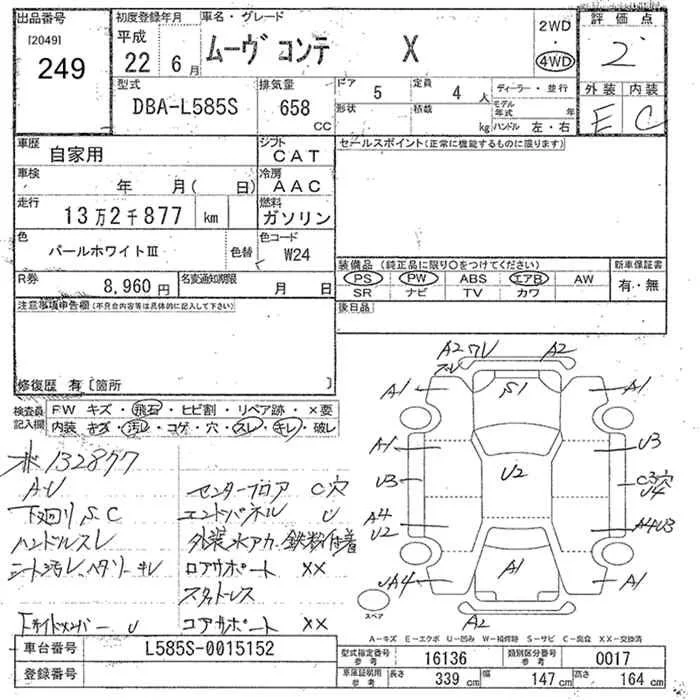 出品番号 初度登録年月 車名・グレード 2WD 評価点
[2049] 平成 ムーヴ コンテ X 4WD 2
249 22年 6月
型式 排気量 ドア 5 定員 4人 ディーラー・並行 外装 内装
DBA-L585S 658 CC 形状 積載 kg モデル年式 年 ハンドル 左・右 E C
車歴 自家用 シフト CAT セールスポイント(正常に機能するものに限ります)
車検 年 月( 日) 冷房 AAC
走行 13万2千877 km 燃料 ガソリン
色 パールホワイトIII 色替 色コード W24
装備品 (純正品に限り○をつけてください) 新車保証書
R券 8,960円 名変通知期限 月 日 PS PW ABS エアB AW 有・無
SR ナビ TV カワ
注意事項申告欄(不具合内容等は具体的に記入して下さい) 後日品
修復歴 有 [箇所 ]
検査員記入欄 FW キズ・飛石・ヒビ割・リペア跡・×要
内装 キズ・汚レ・コゲ・穴・スレ・キレ・破レ
A2 ワU A2
スレ
A1 S1 A1
A1 U3
U3 U2 C3穴
U4
A4 A4U3
U2
UA4 A1 A1
A2
スペア
132877
A・U センターフロア C穴
下廻り S.C エンドパネル U
ハンドルスレ 外装水アカ 鉄粉付着
シート汚レ、ヘタリ・キレ ロアサポート XX
スタットレス
Fサイドメンバー U コアサポート XX
A-キズ E-エクボ U-凹み W-補修跡 S-サビ C-腐食 XX-交換済
車台番号 L585S-0015152 型式指定番号 参考 16136 類別区分番号 参考 0017
登録番号 車庫証明用 参考 長さ 339 cm 幅 147 cm 高さ 164 cm